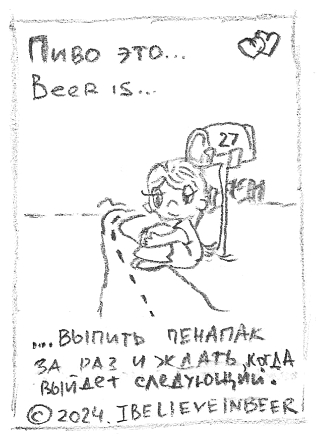 Пиво это...
Beer is...
27
...выпить пенапак
за раз и ждать, когда
выйдет следующий.
© 2024. IBELIEVEINBEER